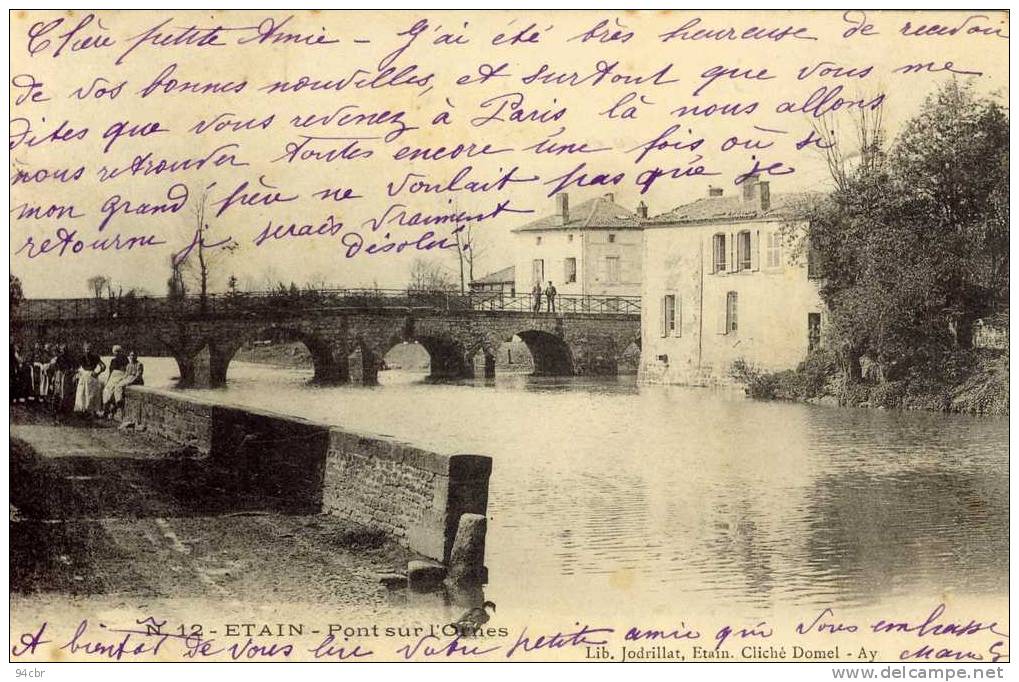 Chère petite Amie - J'ai été très heureuse de recevoir
de vos bonnes nouvelles, et surtout que vous me
dites que vous revenez à Paris là nous allons
nous retrouver toutes encore une fois où si
mon grand père ne voulait pas que je
retourne j, serais vraiment
désolée.
N. 12 - ETAIN - Pont sur l'Ornes
A bientôt de vous lire votre petite amie qui vous embrasse
Lib. Jodrillat, Etain. Cliché Domel - Ay
94cbr
www.delcampe.net